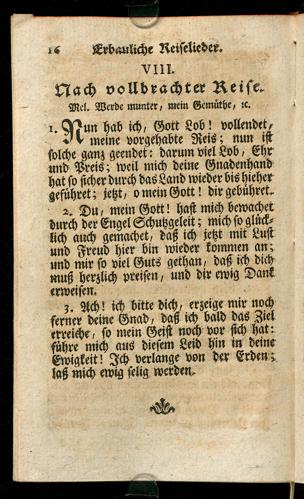 16 Erbauliche Reiselieder.
VIII.
Nach vollbrachter Reise.
Mel. Werde munter, mein Gemüthe, ꝛc.
1. Nun hab ich, Gott Lob! vollendet,
meine vorgehabte Reis; nun ist
solche ganz geendet: darum viel Lob, Ehr
und Preis; weil mich deine Gnadenhand
hat so sicher durch das Land wieder bis hieher
geführet; jetzt, o mein Gott! dir gebühret.
2. Du, mein Gott! hast mich bewachet
durch der Engel Schutzgeleit; mich so glück-
lich auch gemachet, daß ich jetzt mit Lust
und Freud hier bin wieder kommen an;
und mir so viel Guts gethan, daß ich dich
muß herzlich preisen, und dir ewig Dank
erweisen.
3. Ach! ich bitte dich, erzeige mir noch
ferner deine Gnad, daß ich bald das Ziel
erreiche, so mein Geist noch vor sich hat:
führe mich aus diesem Leid hin in deine
Ewigkeit! Ich verlange von der Erden;
laß mich ewig selig werden.